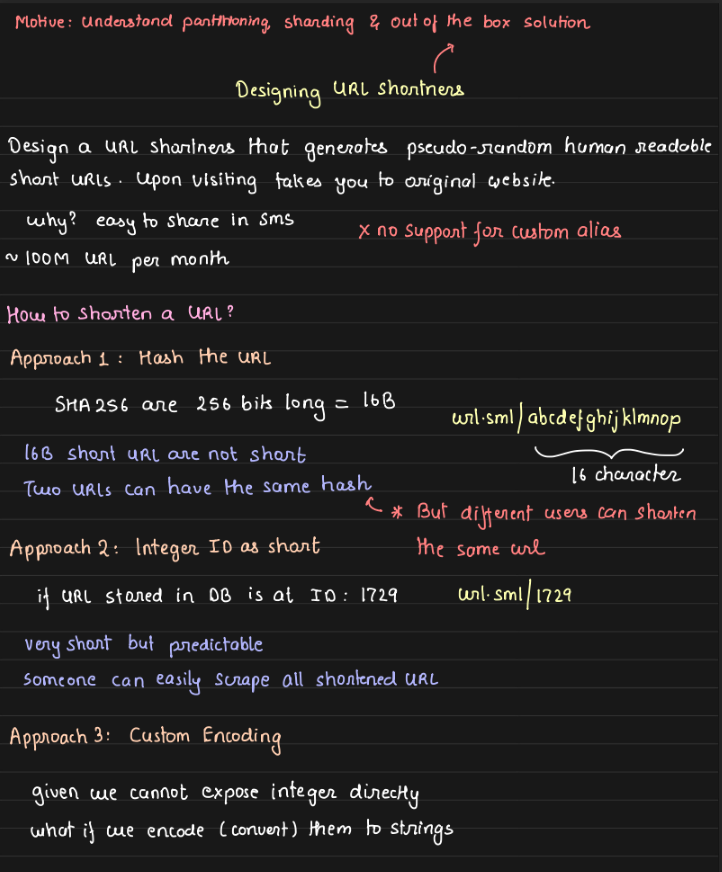 Motive: Understand partitioning, sharding & out of the box solution
Designing URL shortners
Design a URL shortners that generates pseudo-random human readable
short URLs. Upon visiting takes you to original website.
why? easy to share in sms
x no support for custom alias
~ 100M URL per month
How to shorten a URL?
Approach 1: Hash the URL
SHA256 are 256 bits long = 16B
url.sml/abcdefghijklmnop
16B short URL are not short
16 character
Two URLs can have the same hash
* But different users can shorten
the same url
Approach 2: Integer ID as short
if URL stored in DB is at ID: 1729
url.sml/1729
very short but predictable
someone can easily scrape all shortened URL
Approach 3: Custom Encoding
given we cannot expose integer directly
what if we encode (convert) them to strings